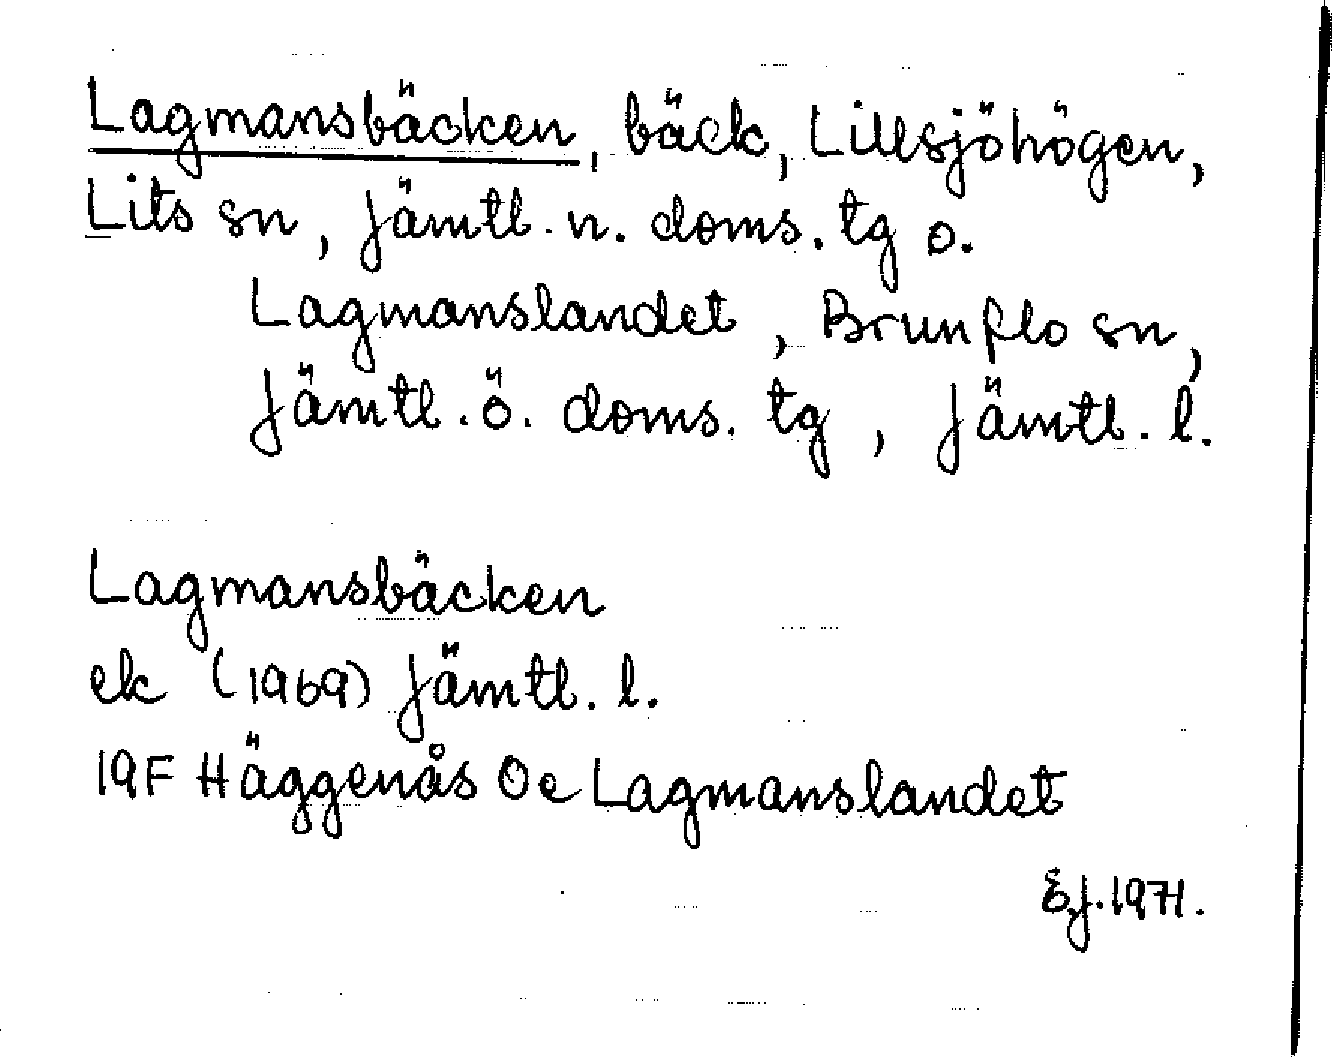 Lagmansbäcken, bäck, Lillsjöhögen,
Lits sn, Jämtl. n. doms. tg o.
Lagmanslandet, Brunflo sn,
Jämtl. ö. doms. tg, Jämtl. l.
Lagmansbäcken
ek (1969) Jämtl. l.
19F Häggenås 0e Lagmanslandet
E.J. 1971.